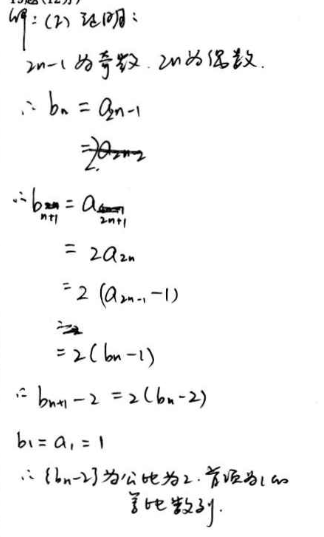 解：(2) 证明：
2n-1 为奇数. 2n为偶数.
∴ bn = a2n-1
∴ bn+1 = a2n+1
= 2a2n
= 2 (a2n-1 -1)
= 2(bn-1)
∴ bn+1 -2 = 2(bn-2)
b1 = a1 = 1
∴ {bn-2}为公比为2. 首项为1的
等比数列.